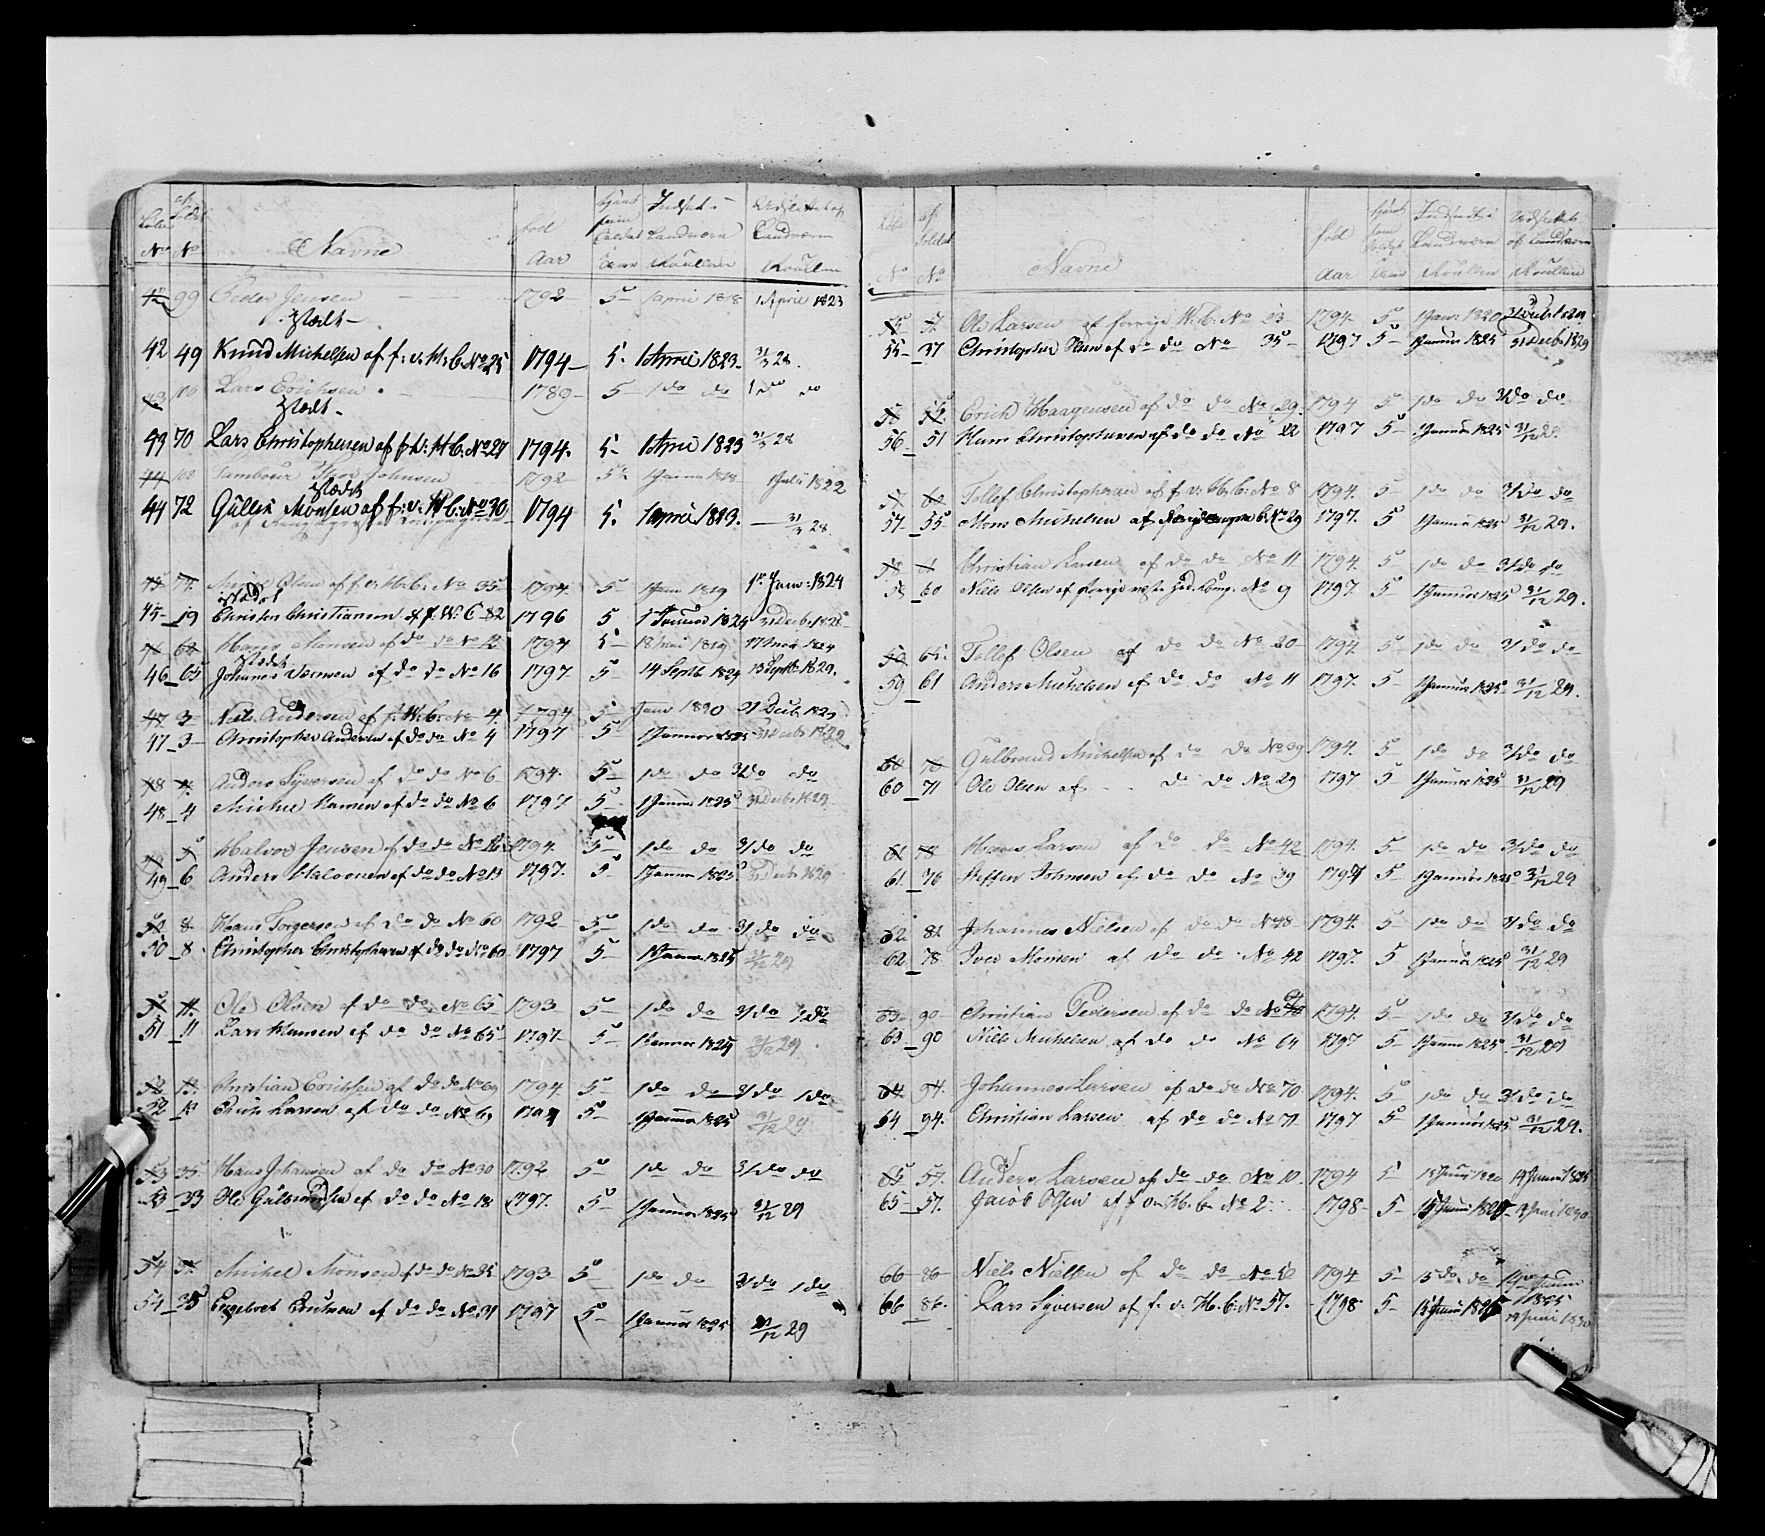 Navne
No No
fød
Aar
42 99 Peder Jensen 1792 5 1 April 1818 1 April 1823
42 49 Knud Michelsen af f: v: W: C: No 25 1794 5 1 April 1823 31/3 28.
Lars Erichsen 1789 5 1 do do 1 do do
43 70 Lars Christophersen af f: v: W: C: No 27 1794. 5 1 April 1823 31/3 28
Tambour Johnsen 1792 5 1818 1 Juli 1822
44 72 Gulbr. Monsen af f: v: W: C: No 30 1794 5. 1 April 1823. 31/3 28.
45 74 Olsen af f: v: W: C: No 35 1794 5 1 Janr 1819 1ste Janr: 1824
45 19 Christen Christiansen af f. W. C 82 1796 5 1 Januar 1824 31 Decb. 1828
Hans Monsen af do do No 12 1794 5 18 Mai 1819 17 Mai 1824
46 65 Johanes af do do No 16 1797 5 14 Septb 1824 13 Septb 1829.
47 3 Niels Andersen af f: W: C: No 4. 1794 5 Janr 1820 31 Decb. 1825
47 3 Christopher Andersen af do do No 4 1797 5 1 Januar 1825 31 Decbr 1829
48 4 Anders Syversen af do do No 6 1794. 5 1 do do 31 do do
48 4 Michel Hansen af do do No 6 1797 5 1 Januar 1825 31 Decbr 1829
Halvor Jensen af do do No 1794. 5 1 do do 31 do do
49 6 Anders Halvorsen af do do No 13 1797. 5 1 Januar 1825 31 Decbr 1829
8 Hans Torgersen af do do No 60 1792 5 1 do do 31 do do
50 8 Christopher Christophersen af do do No 60 1797 5 1 Januar 1825 31/12 29
51 11. Ole Olsen af do do No 65 1793 5 1 do do 31 do do
51 11 Lars Hansen af do do No 65 1797 5 1 Januar 1825 31/12 29
52 13 Christian Erichsen af do do No 69 1794 5 1 do do 31 do do
52 13 Erich Larsen af do do No 69 1797 5 1 Januar 1825 31/12 29
53 35 Hans Johansen af do do No 30 1792 5 1 do do 31 do do
53 33 Ole Gulbrandsen af do do No 18 1797. 5 1 Januar 1825 31/12 29
54 Michel Monsen af do do No 25 1793 5 1 do do 31 do do
54 35 Engebret Knutsen af do do No 31 1797 5 1 Januar 1825 31/12 29
Navne
No No
fød
Aar
55 Ole Larsen af forrige W: C: No 23 1794 5 1 Janr: 1820 31 Decbr 1824
55 37 Christopher Olsen af do do No 35 1797 5 1 Januar 1825 31 Decbr 1829
Erich Haagensen af do do No 29. 1794 5 1 do do 31 do do
56 51 Hans Christophersen af do do No 22 1797 5 1 Januar 1825 31/12 29.
Tollef Christophersen af f: v: W: C: No 8 1794. 5 1 do do 31 do do
57. 55 Mons Michelsen af No 29 1797. 5 1 Januar 1825 31/12 29.
Christian Larsen af do do No 11 1794. 5 1 do do 31 do do
58 60 Niels Olsen af forrige No 9 1797. 5 1 Januar 1825 31/12 29.
59 65. Tollef Olsen af do do No 20 1794 5 1 do do 31 do do
59 61 Anders Michelsen af do do No 11 1797. 5 1 Januar 1825 31/12 29.
60 70 Gulbrand Michelsen af do do No 39 1794. 5 1 do do 31 do do
60 71 Ole Olsen af do do No 29 1797 5 1 Januar 1825 31/12 29
61 78 Hans Larsen af do do No 42 1794. 5 1 do do 31 do do
61. 76 Steffen Johnsen af do do No 39 1797 5 1 Januar 1825 31/12 29
62 82 Johannes Nielsen af do do No 48 1794. 5 1 do do 31 do do
62 78 Iver Monsen af do do No 42 1797. 5 1 Januar 1825 31/12 29
63 90 Christian Pedersen af do do No 1794. 5 1 do do 31 do do
63 90 Niels Michelsen af do do No 64 1797 5 1 Januar 1825 31/12 29
64 94. Johannes Larsen af do do No 70 1794. 5 1 do do 31 do do
64 94. Christian Larsen af do do No 71 1797 5 1 Januar 1825 31/12 29.
65 57. Anders Larsen af do do No 10. 1794 5 15 Juni 1820 14 Juni 1825
65 57. Jacob Olsen af f: v: W: C: No 2. 1798 5 15 Juni 1825 14 Juni 1830
66 86 Niels Nielsen af do do No 52 1794 5 15 do do 14 Juni 1825
66 86. Lars Syversen af f: v: W: C: No 57. 1798 5 15 Juni 1825 14 Juni 1830